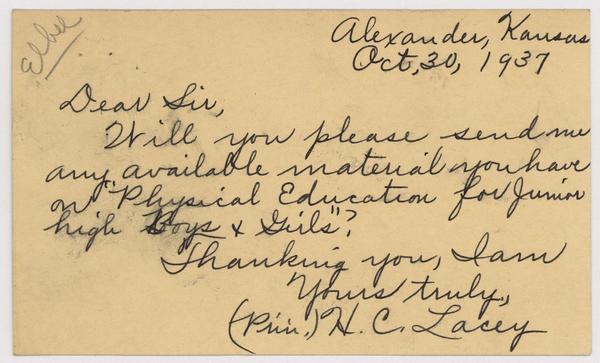 Elbel
Alexander, Kansas
Oct, 30, 1937
Dear Sir,
Will you please send me
any available material you have
on "Physical Education for Junior
high Boys & Girls"?
Thanking you, I am
Yours truly,
(Prin.) H. C. Lacey